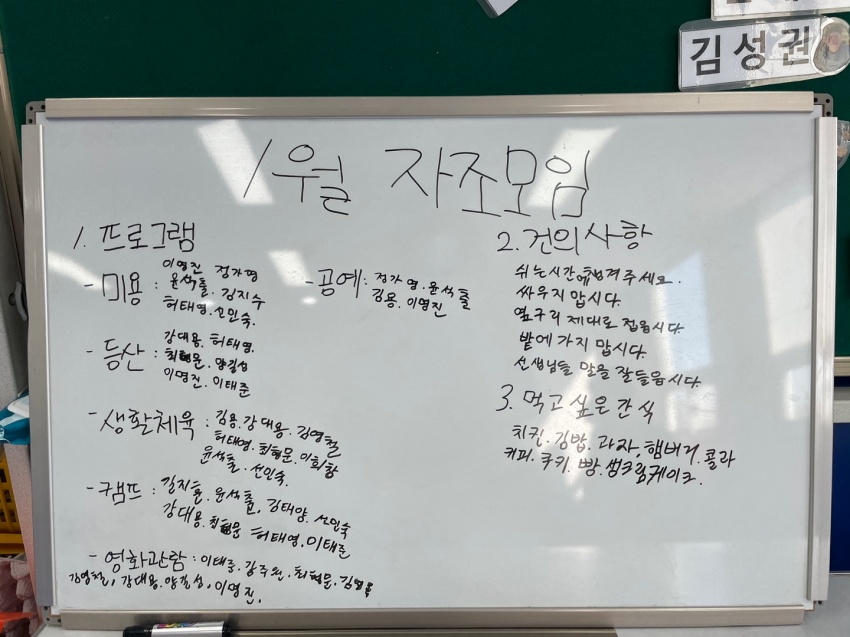 김성권
1월 자조모임
1. 프로그램
- 미용 : 이영진 정가영
윤석훌. 김지수
허태영. 선민숙.
- 공예 : 정가영. 윤석훌
김용. 이영진
- 등산 : 강대용. 허태영.
최형문. 양길성
이영진. 이태준
- 생활체육 : 김용. 강대용. 김영철
허태영. 최형문. 이희창
윤석훌. 선민숙.
- 캠프 : 김지훈. 윤석훌. 김태양. 선민숙
강대용. 최형문 허태영. 이태준
- 영화관람 : 이태준. 강주원. 최형문.
김영철. 강대용. 양길성. 이영진.
2. 건의사항
쉬는시간에 주세요.
싸우지 맙시다.
옆구리 제대로 접읍시다.
밭에 가지 맙시다.
선생님들 말을 잘들읍시다.
3. 먹고 싶은 간식
치킨. 김밥. 과자. 햄버거. 콜라
커피. 쿠키. 빵. 생크림케이크.